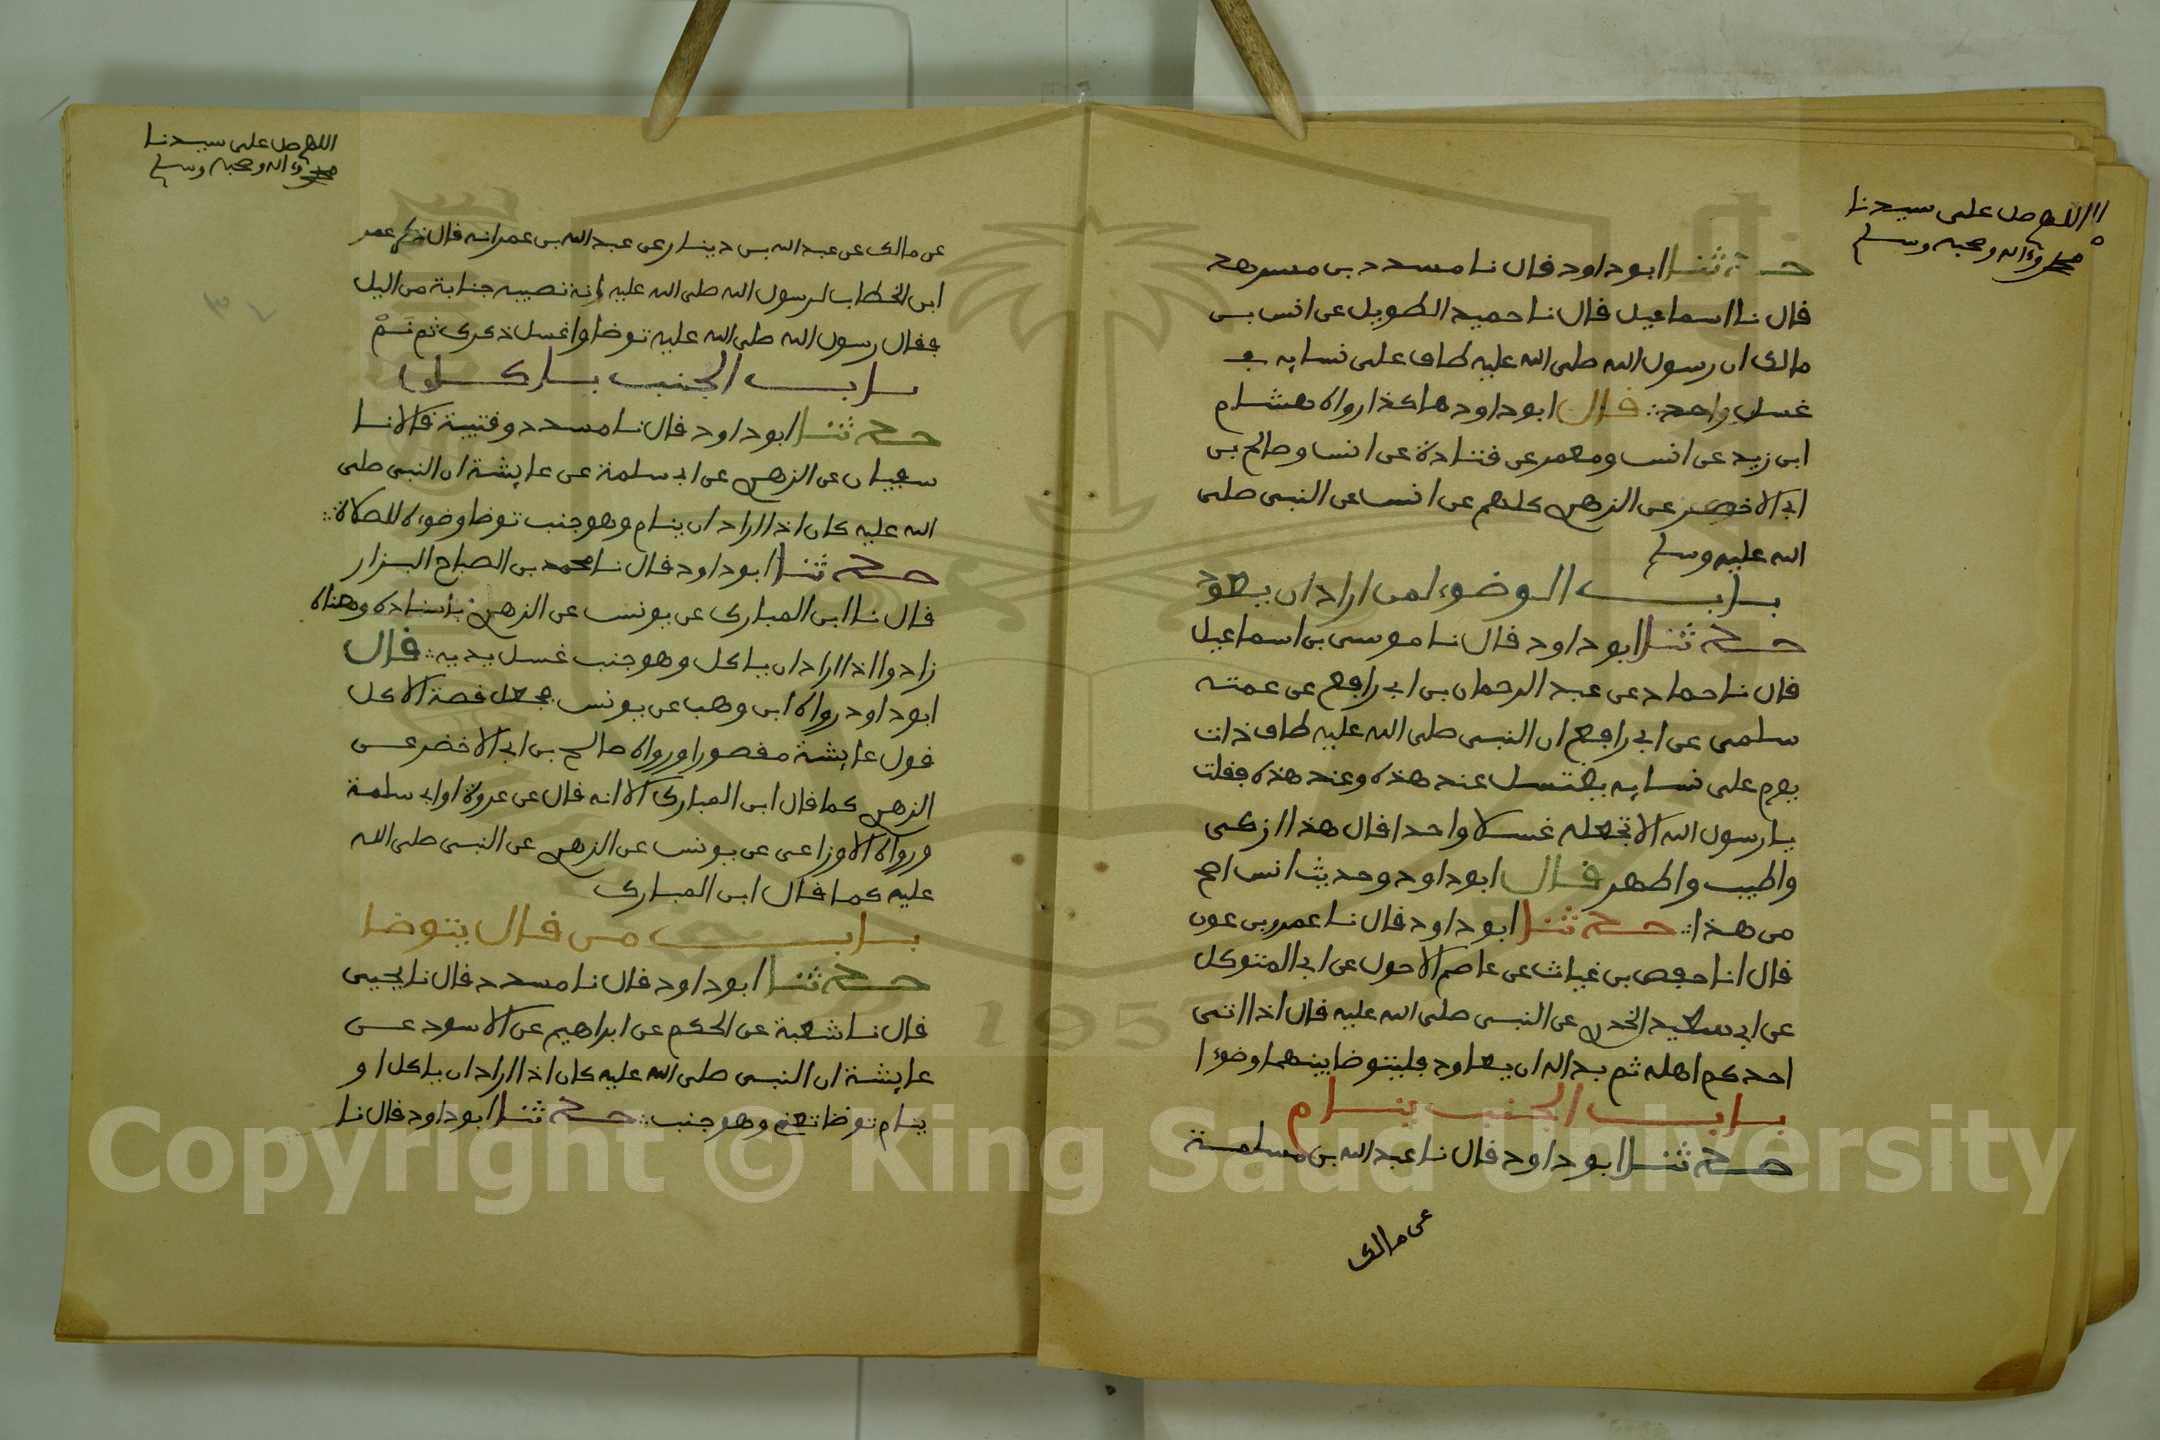 اللهم صل على سيدنا
محمد وءاله وصحبه وسلم
حدثنا ابو داود قال نا مسدد بن مسرهد
قال نا اسماعيل قال نا حميد الطويل عن انس بن
مالك ان رسول الله صلى الله عليه طاف على نسايه في
غسل واحد قال ابو داود هاكذا رواه هشام
ابن زيد عن انس ومعمر عن قتادة عن انس وصالح بن
ابي الاخضر عن الزهري كلهم عن انس عن النبي صلى
الله عليه وسلم
باب الوضوء لمن اراد ان يعود
حدثنا ابو داود قال نا موسى بن اسماعيل
قال نا حماد عن عبد الرحمان بن ابي رافع عن عمته
سلمى عن ابي رافع ان النبي صلى الله عليه طاف ذات
يوم على نسايه يغتسل عند هذه وعند هذه فقلت
يا رسول الله الا تجعله غسلا واحدا قال هذا ازكى
واطيب واطهر قال ابو داود وحديث انس اصح
من هذا حدثنا ابو داود قال نا عمرو بن عون
قال انا حفص بن غياث عن عاصم الاحول عن ابي المتوكل
عن ابي سعيد الخدري عن النبي صلى الله عليه قال اذا اتى
احدكم اهله ثم بدا له ان يعاود فليتوضا بينهما وضوءا
باب الجنب ينام
حدثنا ابو داود قال نا عبد الله بن مسلمة
عن مالك
اللهم صل على سيدنا
محمد وءاله وصحبه وسلم
عن مالك عن عبد الله بن دينار عن عبد الله بن عمر انه قال ذكر عمر
ابن الخطاب لرسول الله صلى الله عليه انه تصيبه جنابة من اليل
فقال رسول الله صلى الله عليه توضا واغسل ذكرك ثم نَمْ
باب الجنب ياكل
حدثنا ابو داود قال نا مسدد وقتيبة قالا نا
سفيان عن الزهري عن ابي سلمة عن عايشة ان النبي صلى
الله عليه كان اذا اراد ان ينام وهو جنب توضا وضوءه للصلاة
حدثنا ابو داود قال نا محمد بن الصباح البزار
قال نا ابن المبارك عن يونس عن الزهري باسناده ومعناه
زاد واذا اراد ان ياكل وهو جنب غسل يديه قال
ابو داود رواه ابن وهب عن يونس فجعل قصة الاكل
قول عايشة مقصورا ورواه صالح بن ابي الاخضر عن
الزهري كما قال ابن المبارك الا انه قال عن عروة او ابي سلمة
ورواه الاوزاعي عن يونس عن الزهري عن النبي صلى الله
عليه كما قال ابن المبارك
باب من قال يتوضا
حدثنا ابو داود قال نا مسدد قال نا يحيى
قال نا شعبة عن الحكم عن ابراهيم عن الاسود عن
عايشة ان النبي صلى الله عليه كان اذا اراد ان ياكل او
ينام توضا تعني وهو جنب حدثنا ابو داود قال نا
1957
Copyright © King Saud University